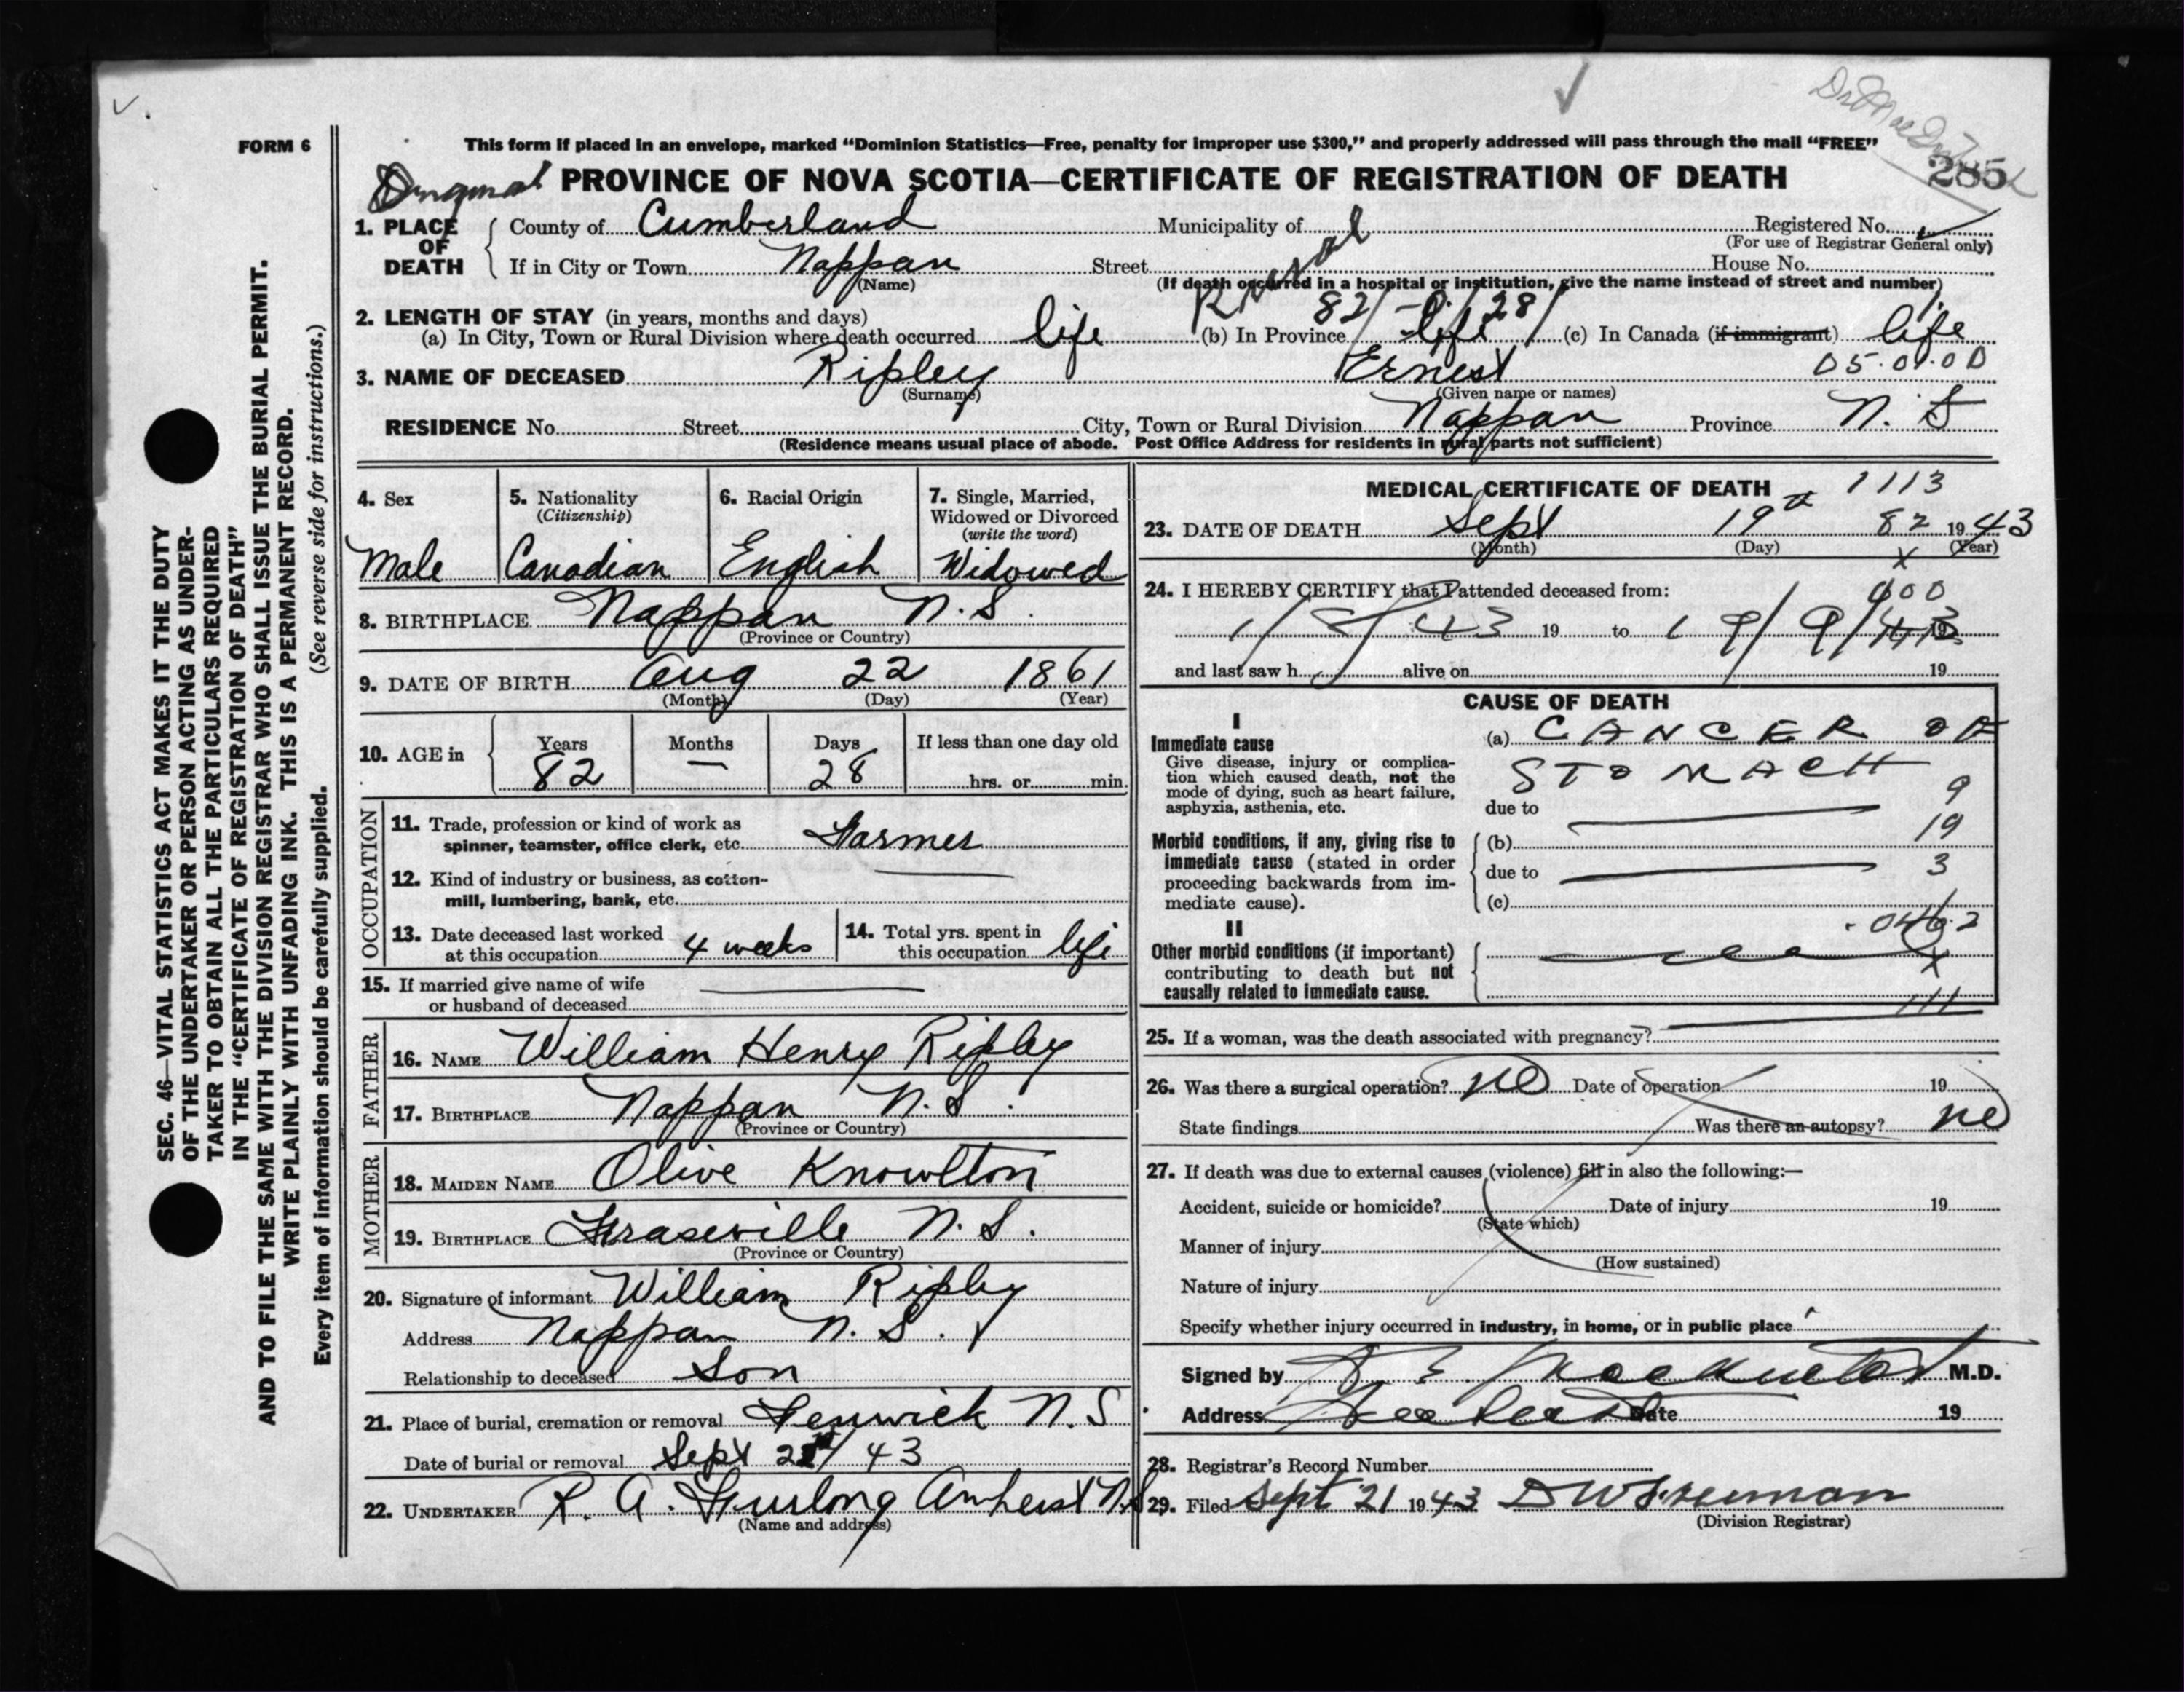 FORM 6
This form if placed in an envelope, marked “Dominion Statistics—Free, penalty for improper use $300,” and properly addressed will pass through the mail “FREE”
PROVINCE OF NOVA SCOTIA—CERTIFICATE OF REGISTRATION OF DEATH
285
1. PLACE OF DEATH
County of Cumberland Municipality of Registered No.
(For use of Registrar General only)
If in City or Town Nappan Street House No.
(Name)
Rural
(If death occurred in a hospital or institution, give the name instead of street and number)
2. LENGTH OF STAY (in years, months and days)
82/-/28/
(a) In City, Town or Rural Division where death occurred life (b) In Province life (c) In Canada (if immigrant) life
3. NAME OF DECEASED Ripley Ernest 05.01.00
(Surname) (Given name or names)
RESIDENCE No. Street City, Town or Rural Division Nappan Province N. S
(Residence means usual place of abode. Post Office Address for residents in rural parts not sufficient)
4. Sex
Male
5. Nationality
(Citizenship)
Canadian
6. Racial Origin
English
7. Single, Married,
Widowed or Divorced
(write the word)
Widowed
8. BIRTHPLACE Nappan N.S.
(Province or Country)
9. DATE OF BIRTH Aug 22 1861
(Month) (Day) (Year)
10. AGE in Years Months Days If less than one day old
82 — 28 hrs. or min.
OCCUPATION
11. Trade, profession or kind of work as
spinner, teamster, office clerk, etc. Farmer
12. Kind of industry or business, as cotton-
mill, lumbering, bank, etc.
13. Date deceased last worked
at this occupation 4 weeks
14. Total yrs. spent in
this occupation life
15. If married give name of wife
or husband of deceased
FATHER
16. NAME William Henry Ripley
17. BIRTHPLACE Nappan N.S.
(Province or Country)
MOTHER
18. MAIDEN NAME Olive Knowlton
19. BIRTHPLACE Fraserville N.S.
(Province or Country)
20. Signature of informant William Ripley
Address Nappan N.S.
Relationship to deceased Son
21. Place of burial, cremation or removal Fenwick N.S
Date of burial or removal Sept 21/43
22. UNDERTAKER R. A. Furlong Amherst N.S
(Name and address)
MEDICAL CERTIFICATE OF DEATH 1113
23. DATE OF DEATH Sept 19th 82 1943
(Month) (Day) (Year)
x
24. I HEREBY CERTIFY that I attended deceased from:
1/8/43 19 to 19/9/43
and last saw h alive on 19
CAUSE OF DEATH
I
Immediate cause
Give disease, injury or complica-
tion which caused death, not the
mode of dying, such as heart failure,
asphyxia, asthenia, etc.
(a) CANCER OF
STOMACH
due to
9
Morbid conditions, if any, giving rise to
immediate cause (stated in order
proceeding backwards from im-
mediate cause).
(b) 19
due to 3
(c)
II
Other morbid conditions (if important)
contributing to death but not
causally related to immediate cause.
x
111
25. If a woman, was the death associated with pregnancy?
26. Was there a surgical operation? no Date of operation 19
State findings Was there an autopsy? no
27. If death was due to external causes (violence) fill in also the following:—
Accident, suicide or homicide? Date of injury 19
(State which)
Manner of injury
(How sustained)
Nature of injury
Specify whether injury occurred in industry, in home, or in public place
Signed by M.D.
Address Date 19
28. Registrar's Record Number
29. Filed Sept 21 1943
(Division Registrar)
SEC. 46—VITAL STATISTICS ACT MAKES IT THE DUTY
OF THE UNDERTAKER OR PERSON ACTING AS UNDER-
TAKER TO OBTAIN ALL THE PARTICULARS REQUIRED
IN THE “CERTIFICATE OF REGISTRATION OF DEATH”
AND TO FILE THE SAME WITH THE DIVISION REGISTRAR WHO SHALL ISSUE THE BURIAL PERMIT.
WRITE PLAINLY WITH UNFADING INK. THIS IS A PERMANENT RECORD.
Every item of information should be carefully supplied. (See reverse side for instructions.)